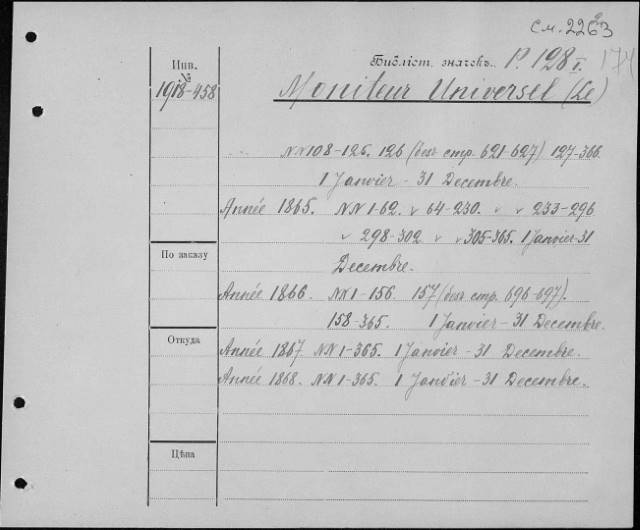 см. 2263
Инв. Библіот. значекъ P. 128 I. 174
№ 1918-458 Moniteur Universel (Le)
NN 108-125. 126 (безъ стр. 621-627) 127-366.
1 Janvier - 31 Decembre.
Année 1865. NN 1-62. " 64-230. " " 233-296
" 298-302 " " 305-365. 1 Janvier-31
По заказу Decembre.
Année 1866. NN 1-156. 157 (безъ стр. 696-697).
158-365. 1 Janvier - 31 Decembre.
Откуда Année 1867 NN 1-365. 1 Janvier - 31 Decembre.
Année 1868. NN 1-365. 1 Janvier - 31 Decembre.
Цѣна